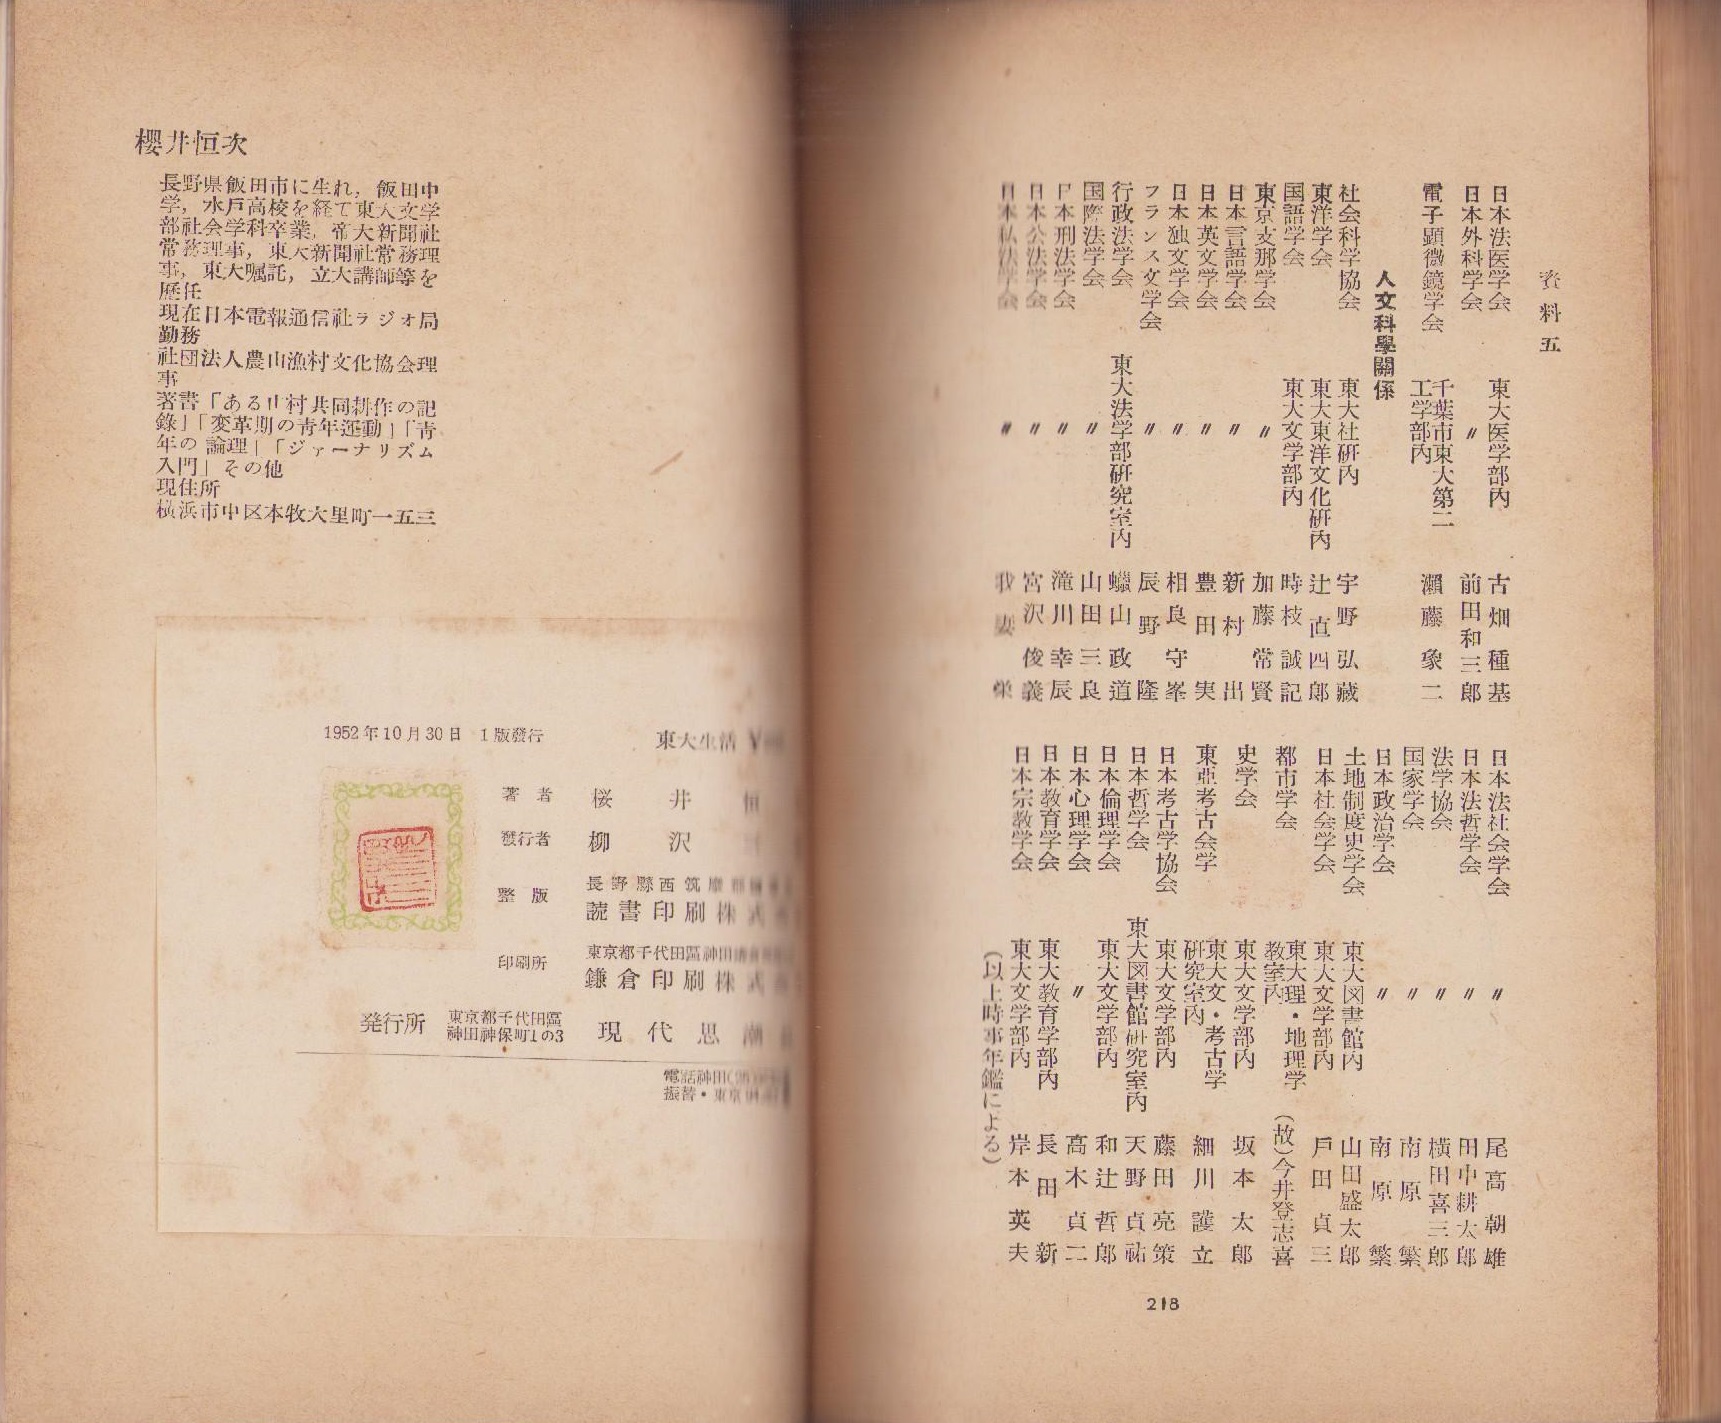 資料五
日本法医学会 東大医学部内 古畑種基
日本外科学会 〃 前田和三郎
電子顕微鏡学会 千葉市東大第二工学部内 瀬藤象二
人文科學關係
社会科学協会 東大社研内 宇野弘蔵
東洋学会 東大東洋文化研内 辻直四郎
国語学会 東大文学部内 時枝誠記
東京支那学会 〃 加藤常賢
日本言語学会 〃 新村出
日本英文学会 〃 豊田実
日本独文学会 〃 相良守峯
フランス文学会 〃 辰野隆
行政法学会 東大法学部研究室内 蠟山政道
国際法学会 〃 山田三良
日本刑法学会 〃 滝川幸辰
日本公法学会 〃 宮沢俊義
日本私法学会 〃 我妻栄
日本法社会学会 〃 尾高朝雄
日本法哲学会 〃 田中耕太郎
法学協会 〃 横田喜三郎
国家学会 〃 南原繁
日本政治学会 〃 南原繁
土地制度史学会 東大図書館内 山田盛太郎
日本社会学会 東大文学部内 戸田貞三
都市学会 東大理・地理学教室内 (故)今井登志喜
史学会 東大文学部内 坂本太郎
東亜考古会学 東大文・考古学研究室内 細川護立
日本考古学協会 東大文学部内 藤田亮策
日本哲学会 東大図書館研究室内 天野貞祐
日本倫理学会 東大文学部内 和辻哲郎
日本心理学会 〃 高木貞二
日本教育学会 東大教育学部内 長田新
日本宗教学会 東大文学部内 岸本英夫
(以上時事年鑑による)
218
櫻井恒次
長野県飯田市に生れ，飯田中
学，水戸高校を経て東大文学
部社会学科卒業，帝大新聞社
常務理事，東大新聞社常務理
事，東大嘱託，立大講師等を
歴任
現在日本電報通信社ラジオ局
勤務
社団法人農山漁村文化協会理
事
著書「ある山村共同耕作の記
録」「変革期の青年運動」「青
年の論理」「ジァーナリズム
入門」その他
現住所
横浜市中区本牧大里町一五三
1952年10月30日 1版發行
東大生活 ¥
著者 桜井恒
發行者 柳沢
整版 長野縣西筑摩郡
読書印刷株式
印刷所 東京都千代田區神田
鎌倉印刷株式
発行所 東京都千代田區
神田神保町1の3
現代思潮
電話神田
振替・東京